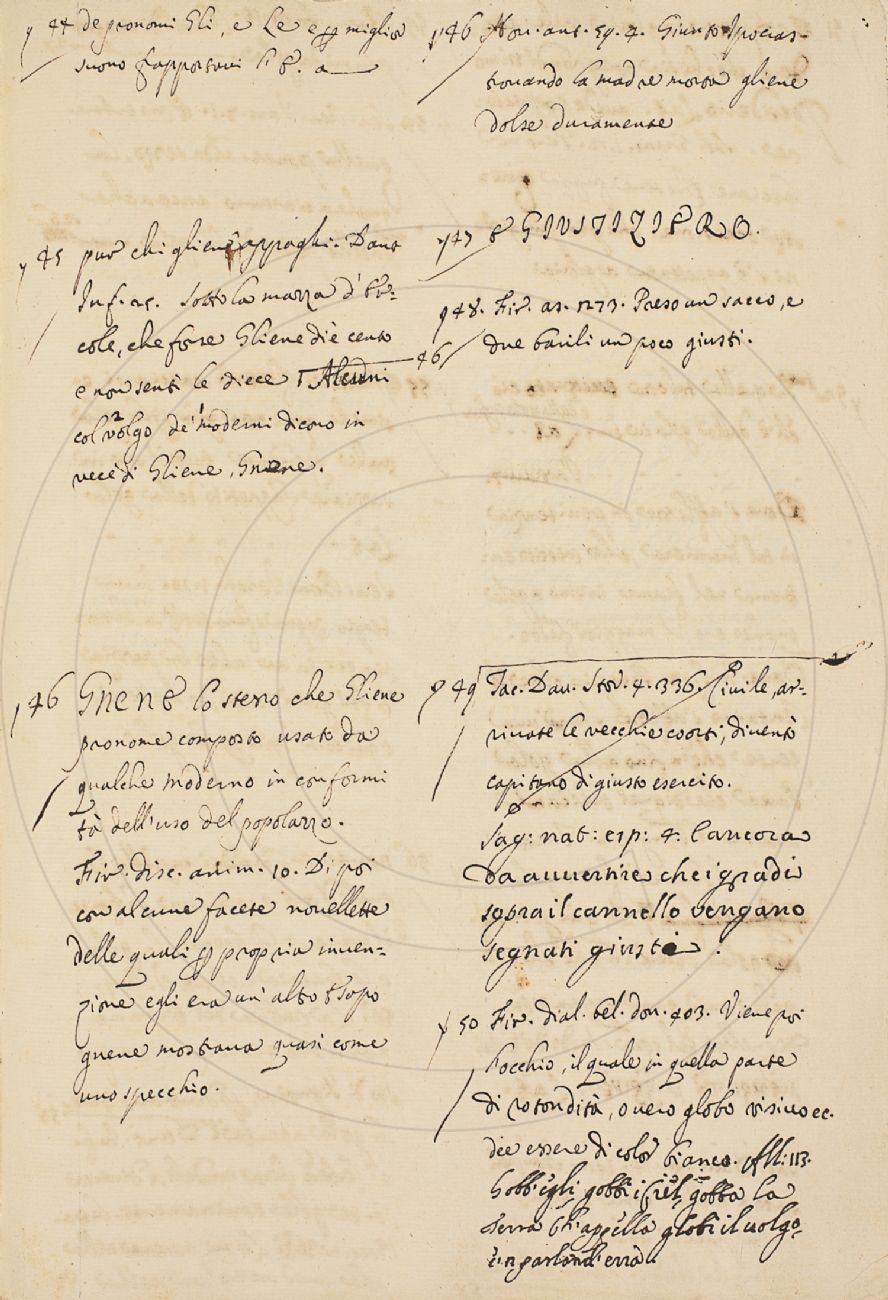 44 de pronomi Gli, e Le e p miglior
suono frapportavi l'E. a
45 pur chi gliene appaghi. Dant
Inf. 25. Sotto la mazza d'Er-
cole, che forse Gliene diè cento
e non sentì le diece Alcuni
col volgo de' moderni dicono in
vece di Gliene, Gnene.
46 GnenE lo stesso che Gliene
pronome composto usato da
qualche moderno in conformi
tà dell'uso del popolazzo.
Fir. disc. anim. 10. Di poi
con alcune facete novellette
delle quali p propria inven-
zione egli era un'altro Esopo
gnene mostrava quasi come
uno specchio.
46 Nov. ant. 59. 4. Giunto Ipocras-
trovando la madre morta gliene
dolse duramente
47 E GIUSTIZIERO.
48. Fir. as. 273. Preso un sacco, e
46 due barili un poco giusti.
49 Tac. Dav. Stor. 4. 336. Civile, ar-
rivate le vecchie coorti, diventò
capitano di giusto esercito.
Sag: nat: esp: 4. E ancora
da avvertire che i gradi
sopra il cannello vengano
segnati giusti.
50 Fir. dial. bel. don. 403. Viene poi
l'occhio, il quale in quella parte
di rotondità, overo globo visivo ec.
dee essere di color bianco. All: 113.
gobbi egli gobbi gobba la
terra ch'appella globi il volgo
e'n parland' erra.